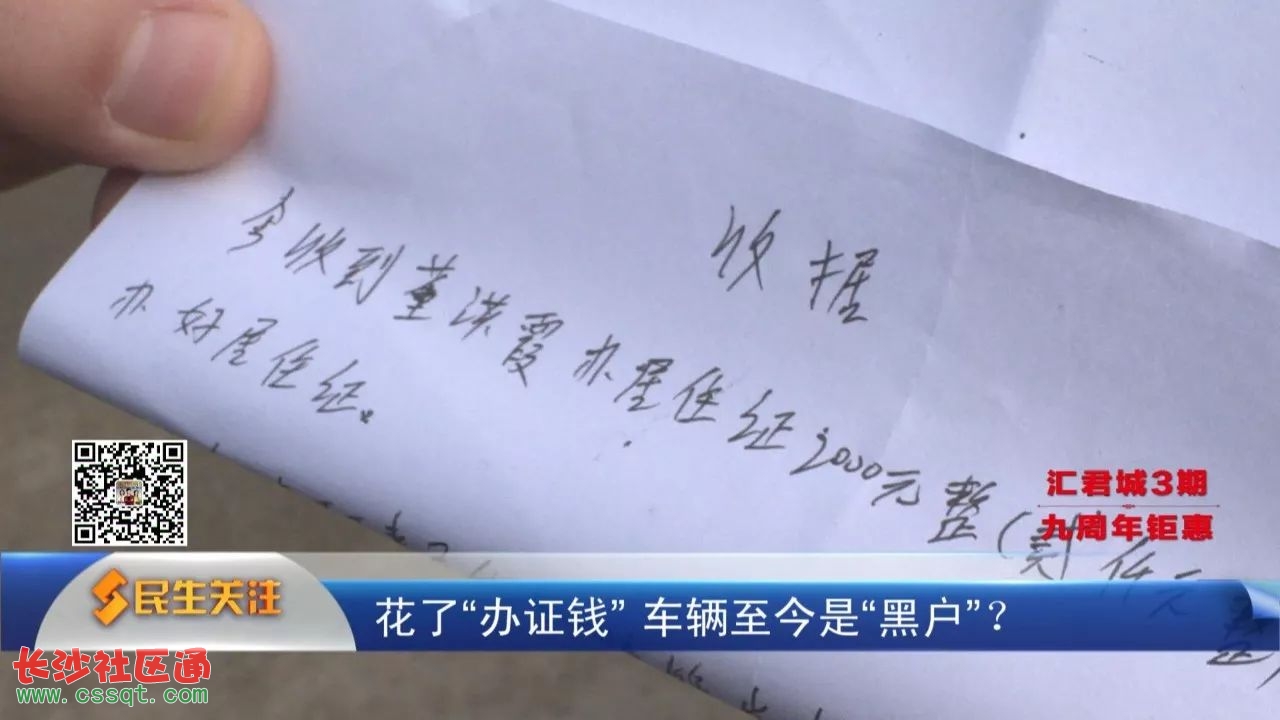 收据
今收到董洪霞办居住证2000元整(贰仟元整)
办好居住证。
汇君城3期
九周年钜惠
民生关注
花了“办证钱” 车辆至今是“黑户”?
长沙社区通
www.cssqt.com